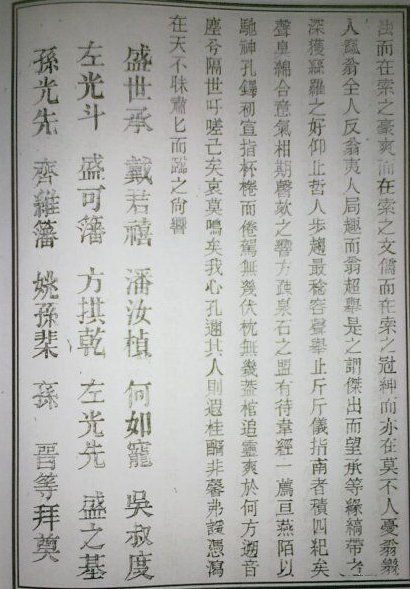 出而在索之豪爽而在索之文儒而在索之冠紳而亦在莫不人憂翁樂
人翁全人反翁夷人局趣而翁超舉是之謂傑出而望承等縁縞帶之
深獲蘿之好仰止哲人步趨最稔容聲舉止斤斤儀指南者積四紀矣
聲皇綿合意氣相期謦欬之響方奔泉石之盟有待韋經一薦亘燕陌以
馳神孔鐸初宣指杯棬而倦駕無幾伏枕無幾蓋棺追靈爽於何方遡音
塵兮隔世吁嗟已矣哀莫鳴矣我心孔邇其人則遐桂酹非馨弗諼憑瀉
在天不昧肅匕而臨之尚饗
盛世承 戴君禧 潘汝楨 何如寵 吳叔度
左光斗 盛可藩 方拱乾 左光先 盛之基
孫光先 齊維藩 姚孫棐 孫 晋等拜奠